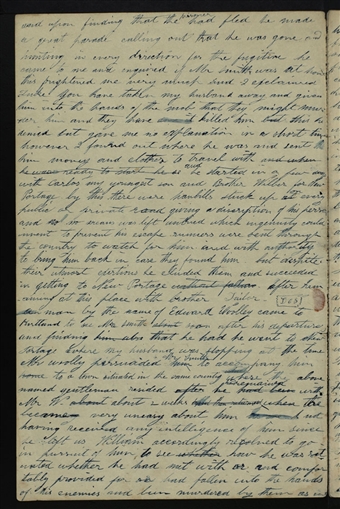 and upon finding that the prisoner had fled he made
a great parade calling out that he was gone and
hunting in every direction for the fugitive he
came to me and enquired if Mr Smith was at home
this frightened me very much and I exclaimed
Luke you have taken my husband away and given
him into the hands of the mob that they might mur
der him and they have killed him but this he
denied but gave me no explanation in a short time
however I found out where he was and sent to
him money and clothes to travel with and when
he was ready to start he started in a few days
with Carlos my youngest son and Brother Wilber for New
Portage by this there were handbills stuck up at every
public and private road giving a discription of his person
and not a means was left untried which ingenuity could
invent to prevent his escape runners were sent through
the country to watch for them armed with authority
to bring him back in case they found him but despite
their utmost exertions he eluded them and succeeded
in getting to New Portage after his
arrival at this place with brother Tailor.
man by the name of Edward Woolley came to
Kirtland to see Mr Smith soon after his departure
and finding him also that he had be went to New
Portage where my husband was stopping at the time
Mr Woolley persuaded Mr Smith to accompany him
home to a town situated in the same county where the above
named gentleman resided remained with
Mr W. about 2 weeks when we
became very uneasy about him not
having received any intelligence of him since
he left us William accordingly resolved to go
in pursuit of him, to see how he was sit
uated whether he had met with and comfor
tably provided for or had fallen into the hands
of his enemies and been murdered by them as